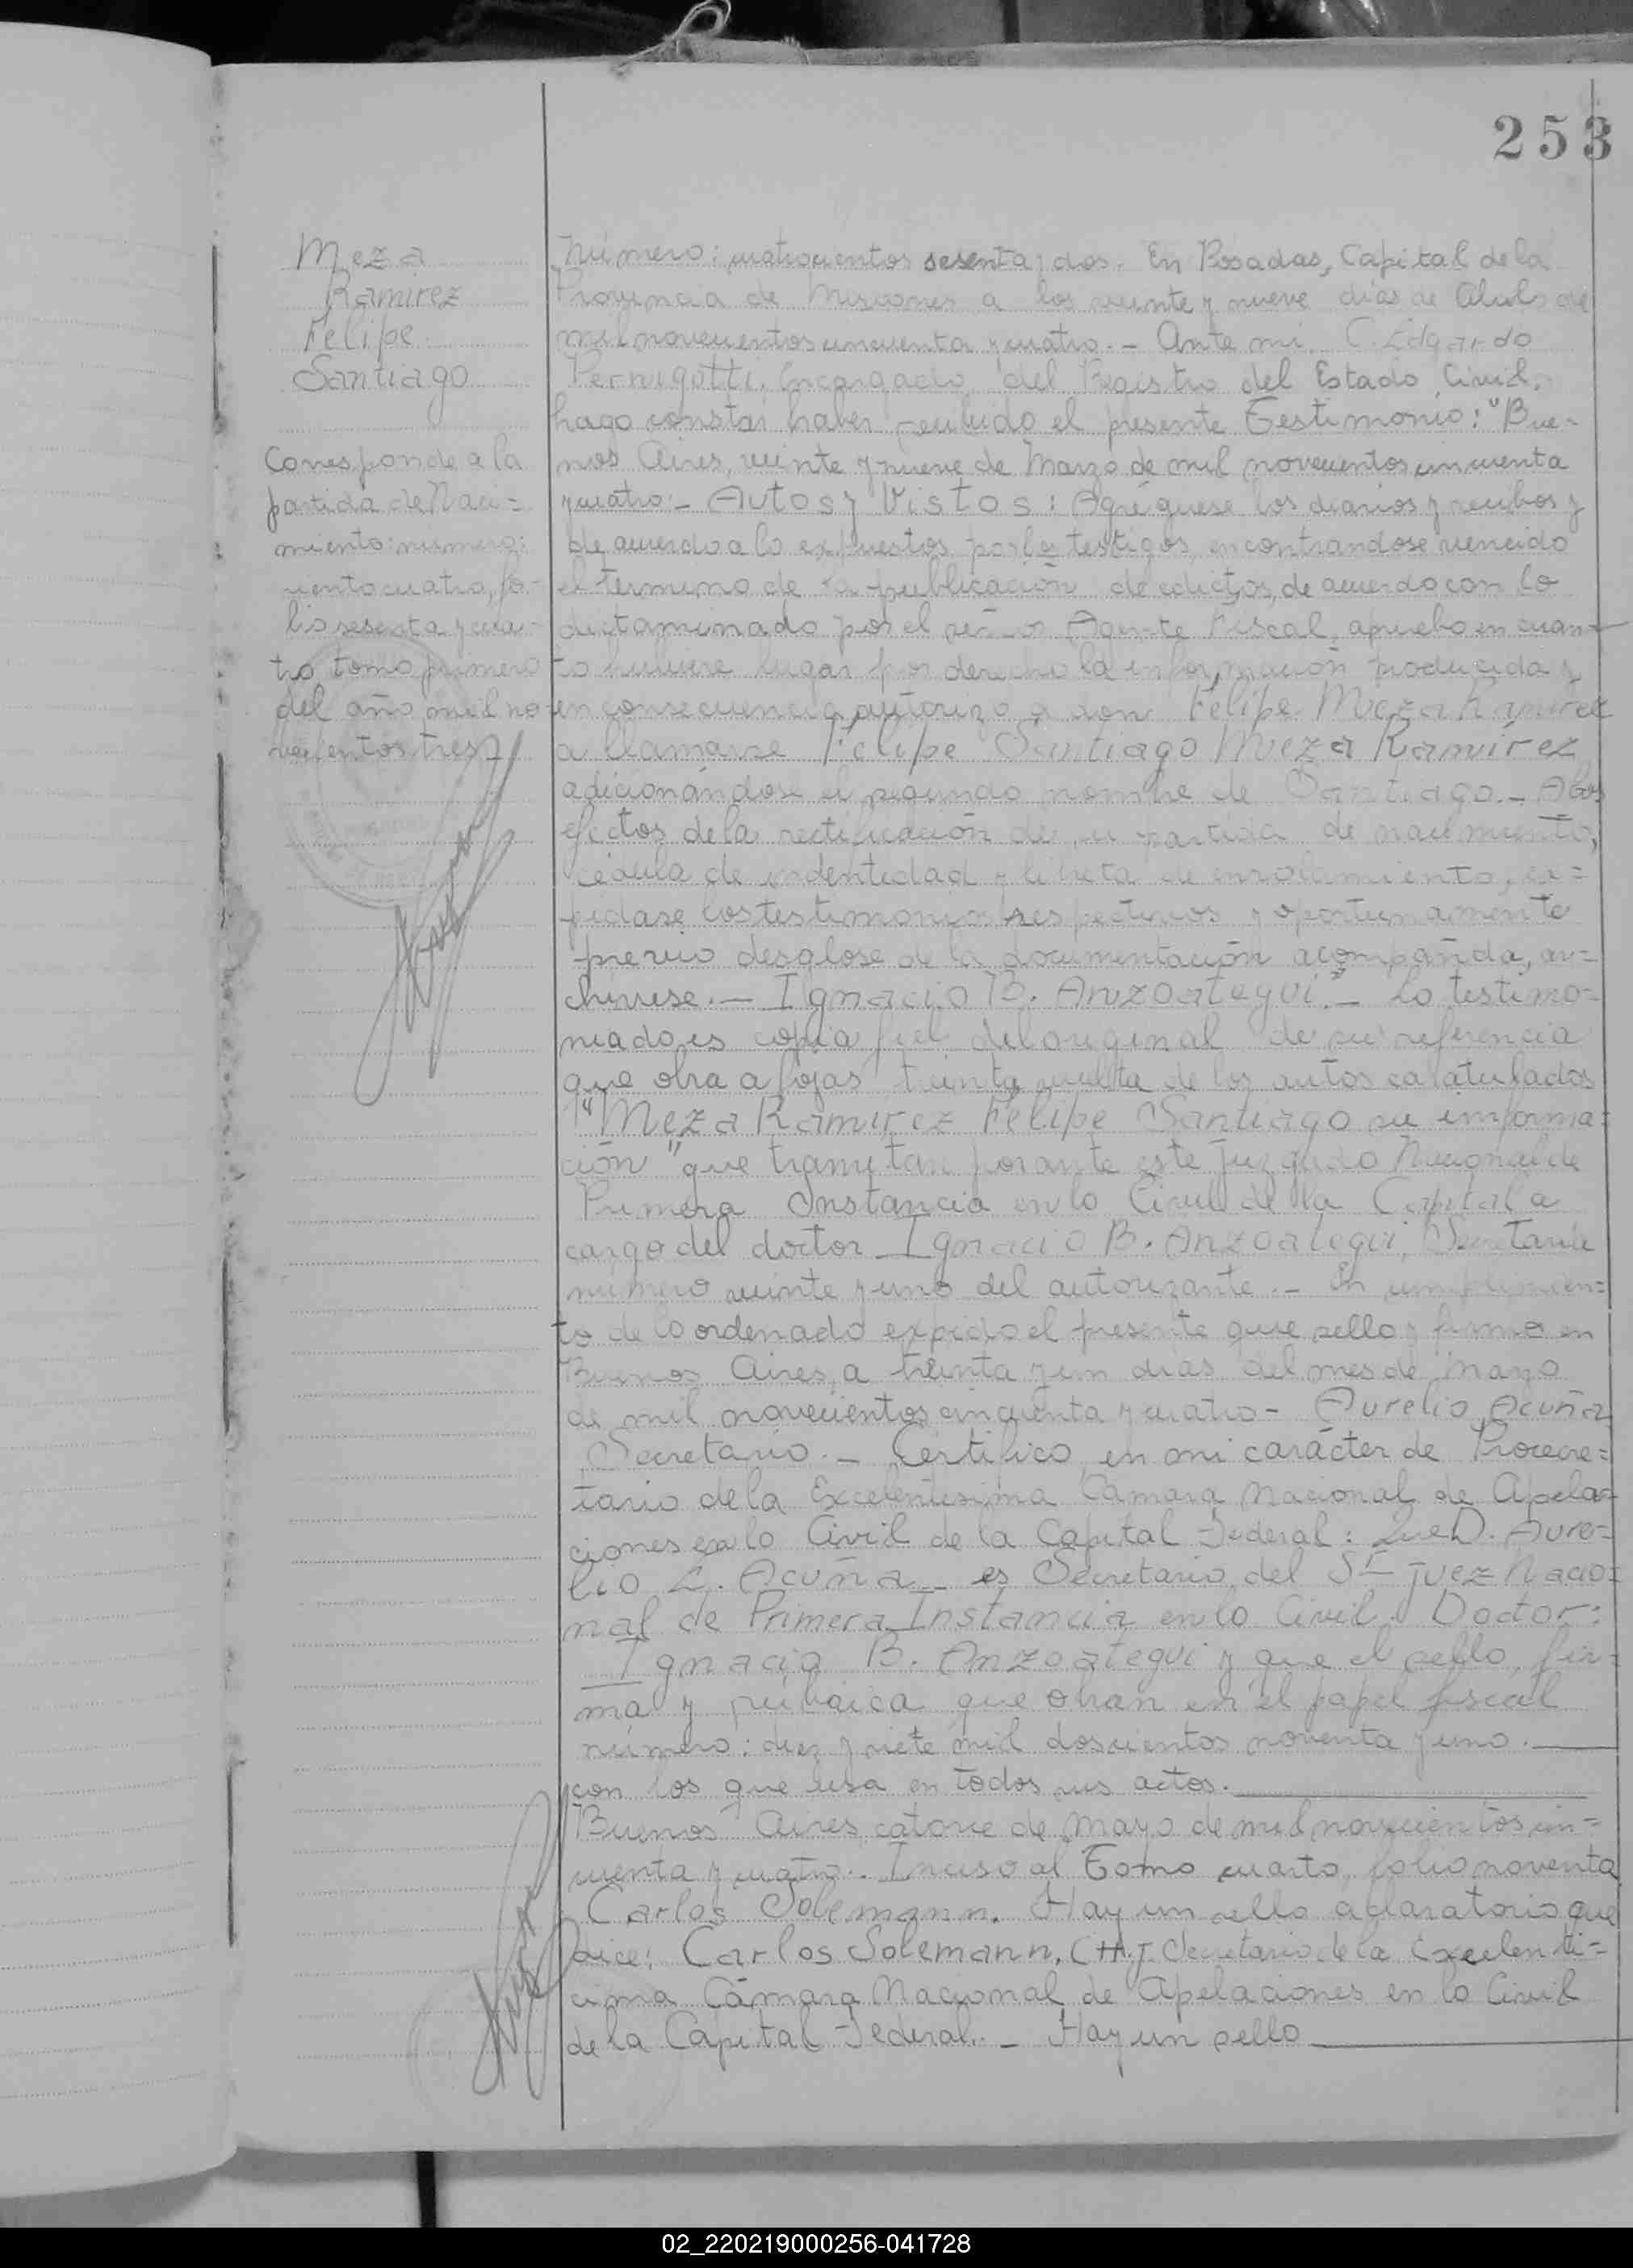 253
Meza
Ramirez
Felipe
Santiago
Corresponde a la
partida de Naci=
miento numero:
ciento cuatro, fo-
lio sesenta y cua-
tro, tomo primero
del año mil no
vecientos tres
Número: cuatrocientos sesenta y dos. En Posadas, Capital de la
Provincia de Misiones a los veinte y nueve días de Abril de
mil novecientos cincuenta y cuatro. - Ante mi C. Edgardo
Pernigotti, Encargado del Registro del Estado Civil,
hago constar haber recibido el presente Testimonio: "Bue-
nos Aires, veinte y nueve de Marzo de mil novecientos cincuenta
y cuatro: - Autos y Vistos: Agréguese los diarios y recibos y
de acuerdo a lo expuestos por los testigos, encontrandose vencido
el termino de la publicación de edictos, de acuerdo con lo
dictaminado por el señor Agente Fiscal, apruebo en cuan-
to hubiere lugar por derecho la información producida y
en consecuencia autorizo a don Felipe Meza Ramirez
a llamarse Felipe Santiago Meza Ramirez
adicionándose el segundo nombre de Santiago. - A los
efectos de la rectificación de su partida de nacimiento,
cédula de indentidad y libreta de enrolamiento, ex=
pídase los testimonios respectivos y oportunamente
previo desglose de la documentación acompañda, ar=
chivese. - Ignacio B. Anzoategui." - Lo testimo=
niado es copia fiel del original de su referencia
que obra a fojas treinta vuelta de los autos caratulados
"Meza Ramirez Felipe Santiago su informa=
ción" que tramitan por ante este Juzgado Nacional de
Primera Instancia en lo Civil de la Capital a
cargo del doctor Ignacio B. Anzoategui, Secretaría
número veinte y uno del autorizante. - En cumplimien=
to de lo ordenado expido el presente que sello y firmo en
Buenos Aires, a treinta y un dias del mes de marzo
de mil novecientos cincuenta y cuatro - Aurelio Acuña
Secretario. - Certifico, en mi carácter de Prosecre=
tario de la Excelentisima Camara Nacional de Apela=
ciones en lo Civil de la Capital Federal: Que D. Aure=
lio L. Acuña - es Secretario, del Sr Juez Nacio=
nal de Primera Instancia en lo Civil. Doctor:
Ignacio B. Anzoategui y que el sello, fir=
ma y rúbrica que obran en el papel fiscal
número: diez y siete mil doscientos noventa y uno.
con los que usa en todos sus actos.
Buenos Aires, catorce de mayo de mil novecientos cin=
cuenta y cuatro. Inciso al Tomo cuarto, folio noventa
Carlos Solemann. Hay un sello aclaratorio que
dice: Carlos Solemann. Secretario de la Excelenti=
cima Cámara Nacional de Apelaciones en lo Civil
de la Capital Federal. - Hay un sello
02_220219000256-041728